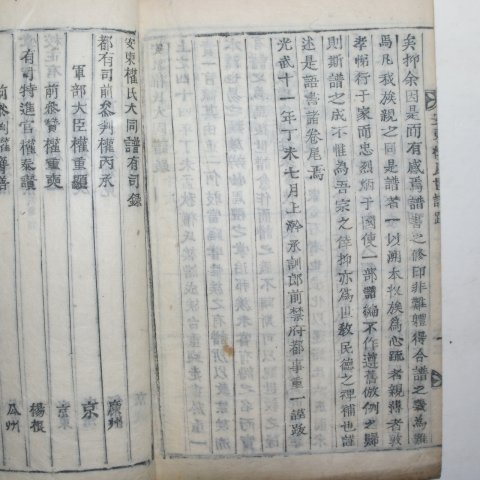 矣抑余因是而有感焉譜書之修印非難體得合譜之義爲難
焉凡我族親之同是譜者一以溯本收族爲心疏者親薄者敦
孝悌行于家而忠烈炳于國使一部譜編不作遵舊倣例之歸
則斯譜之成不惟爲吾宗之倖抑亦爲世敎民德之裨補也謹
述是語書諸卷尾焉
光武十一年丁未七月上澣承訓郎前禁府都事重一謹跋
安東權氏大同譜有司錄
都有司前參判權丙 廣州
軍部大臣權重顯 京
前參贊權重奭 京
有司特進官權泰 楊根
前參判權 瓜州